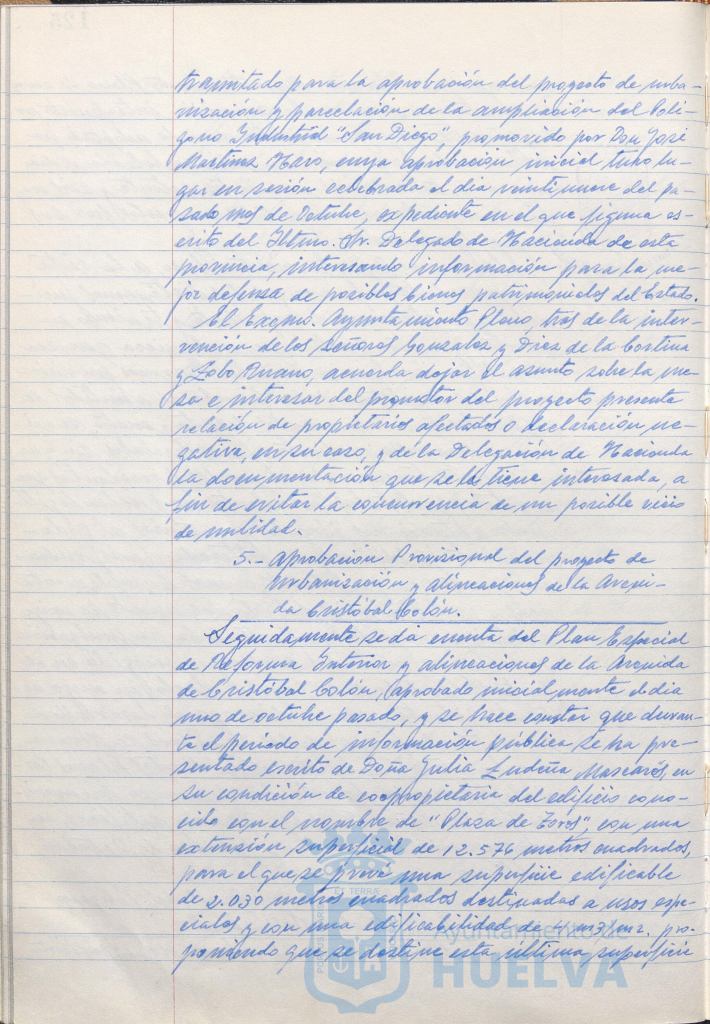 tramitado para la aprobación del proyecto de urba-
nización y parcelación de la ampliación del Polí-
gono Industrial "San Diego", promovido por Don José
Martínez Haro, cuya aprobación inicial tuvo lu-
gar en sesión celebrada el dia veintinueve del pa-
sado mes de Octubre, expediente en el que figura es-
crito del Iltmo. Sr. Delegado de Hacienda de esta
provincia, interesando información para la me-
jor defensa de posibles bienes patrimoniales del Estado.
El Excmo. Ayuntamiento Pleno, tras de la inter-
vención de los señores Gonzalez y Diez de la Cortina
y Lobo Ruano, acuerda dejar el asunto sobre la me-
sa e interesar del promotor del proyecto presente
relación de propietarios afectados o declaración ne-
gativa, en su caso, y de la Delegación de Hacienda
la documentación que se le tiene interesada, a
fin de evitar la concurrencia de un posible vicio
de nulidad.
5.- Aprobación Provisional del proyecto de
Urbanización y alineaciones de la Aveni-
da Cristóbal Colón.
Seguidamente se da cuenta del Plan Especial
de Reforma Interior y alineaciones de la Avenida
de Cristóbal Colón, aprobado inicialmente el dia
uno de octubre pasado, y se hace constar que duran-
te el período de información pública se ha pre-
sentado escrito de Doña Julia Ludeña Mascarós, en
su condición de copropietaria del edificio cono-
cido con el nombre de "Plaza de Toros", con una
extensión superficial de 12.576 metros cuadrados,
para el que se prevé una superficie edificable
de 2.030 metros cuadrados destinadas a usos espe-
ciales y con una edificabilidad de 4 m3/m2. pro-
poniendo que se destine esta última superficie
Ayuntamiento de
HUELVA